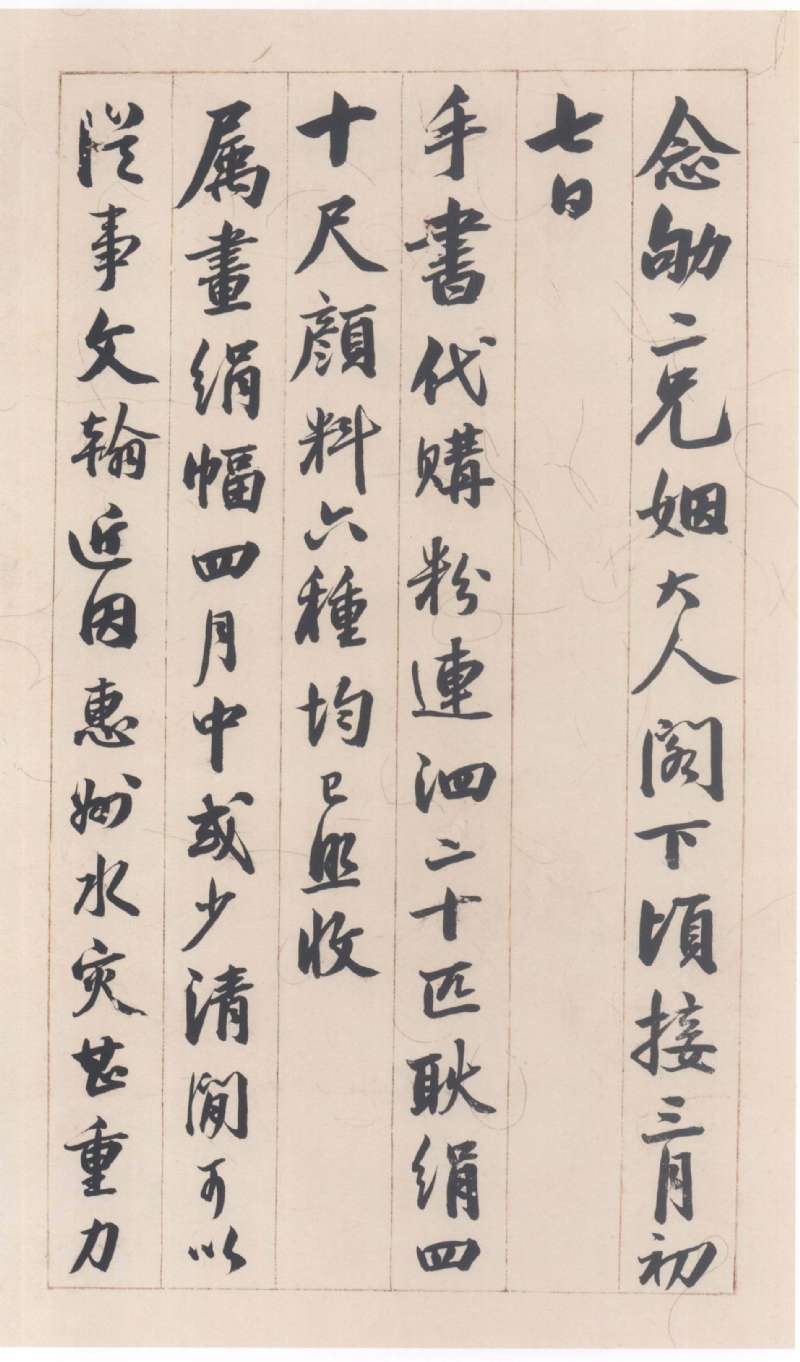 念劬二兄姻大人閣下頃接三月初
七日
手書代購粉連泗二十匹耿絹四
十尺顔料六種均已照收
属畫絹幅四月中或少清閒可以
從事文翰近因惠州水灾甚重力